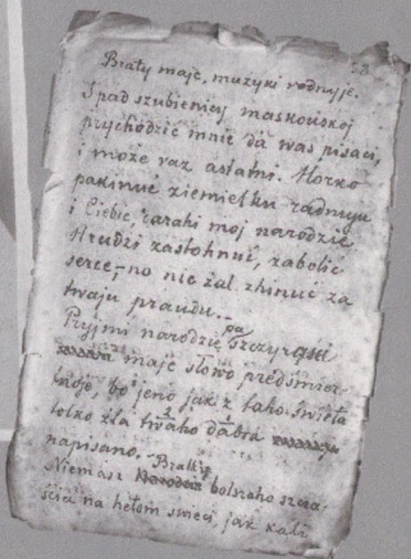 Braty maje, mużyki rodnyje.
Z pad szubienicy maskouskoj
prychodzić mnie da was pisaci,
i może raz astatni. Horko
pakinuć ziemielku radnuju
i Ciebie, darahi moj narodzie.
Hrudzi zastohnuć, zabolić
serce,- no nie żal zhinuć za
twaju praudu.-
Pryjmi narodzie pa szczyrasti
maje słowo predśmier-
tnoje, bo jeno jak z taho świeta
tolko dla twaho dabra
napisano.- Bratky
Niemasz bolszaho szcza-
ścia na hetom świeci, jak kali